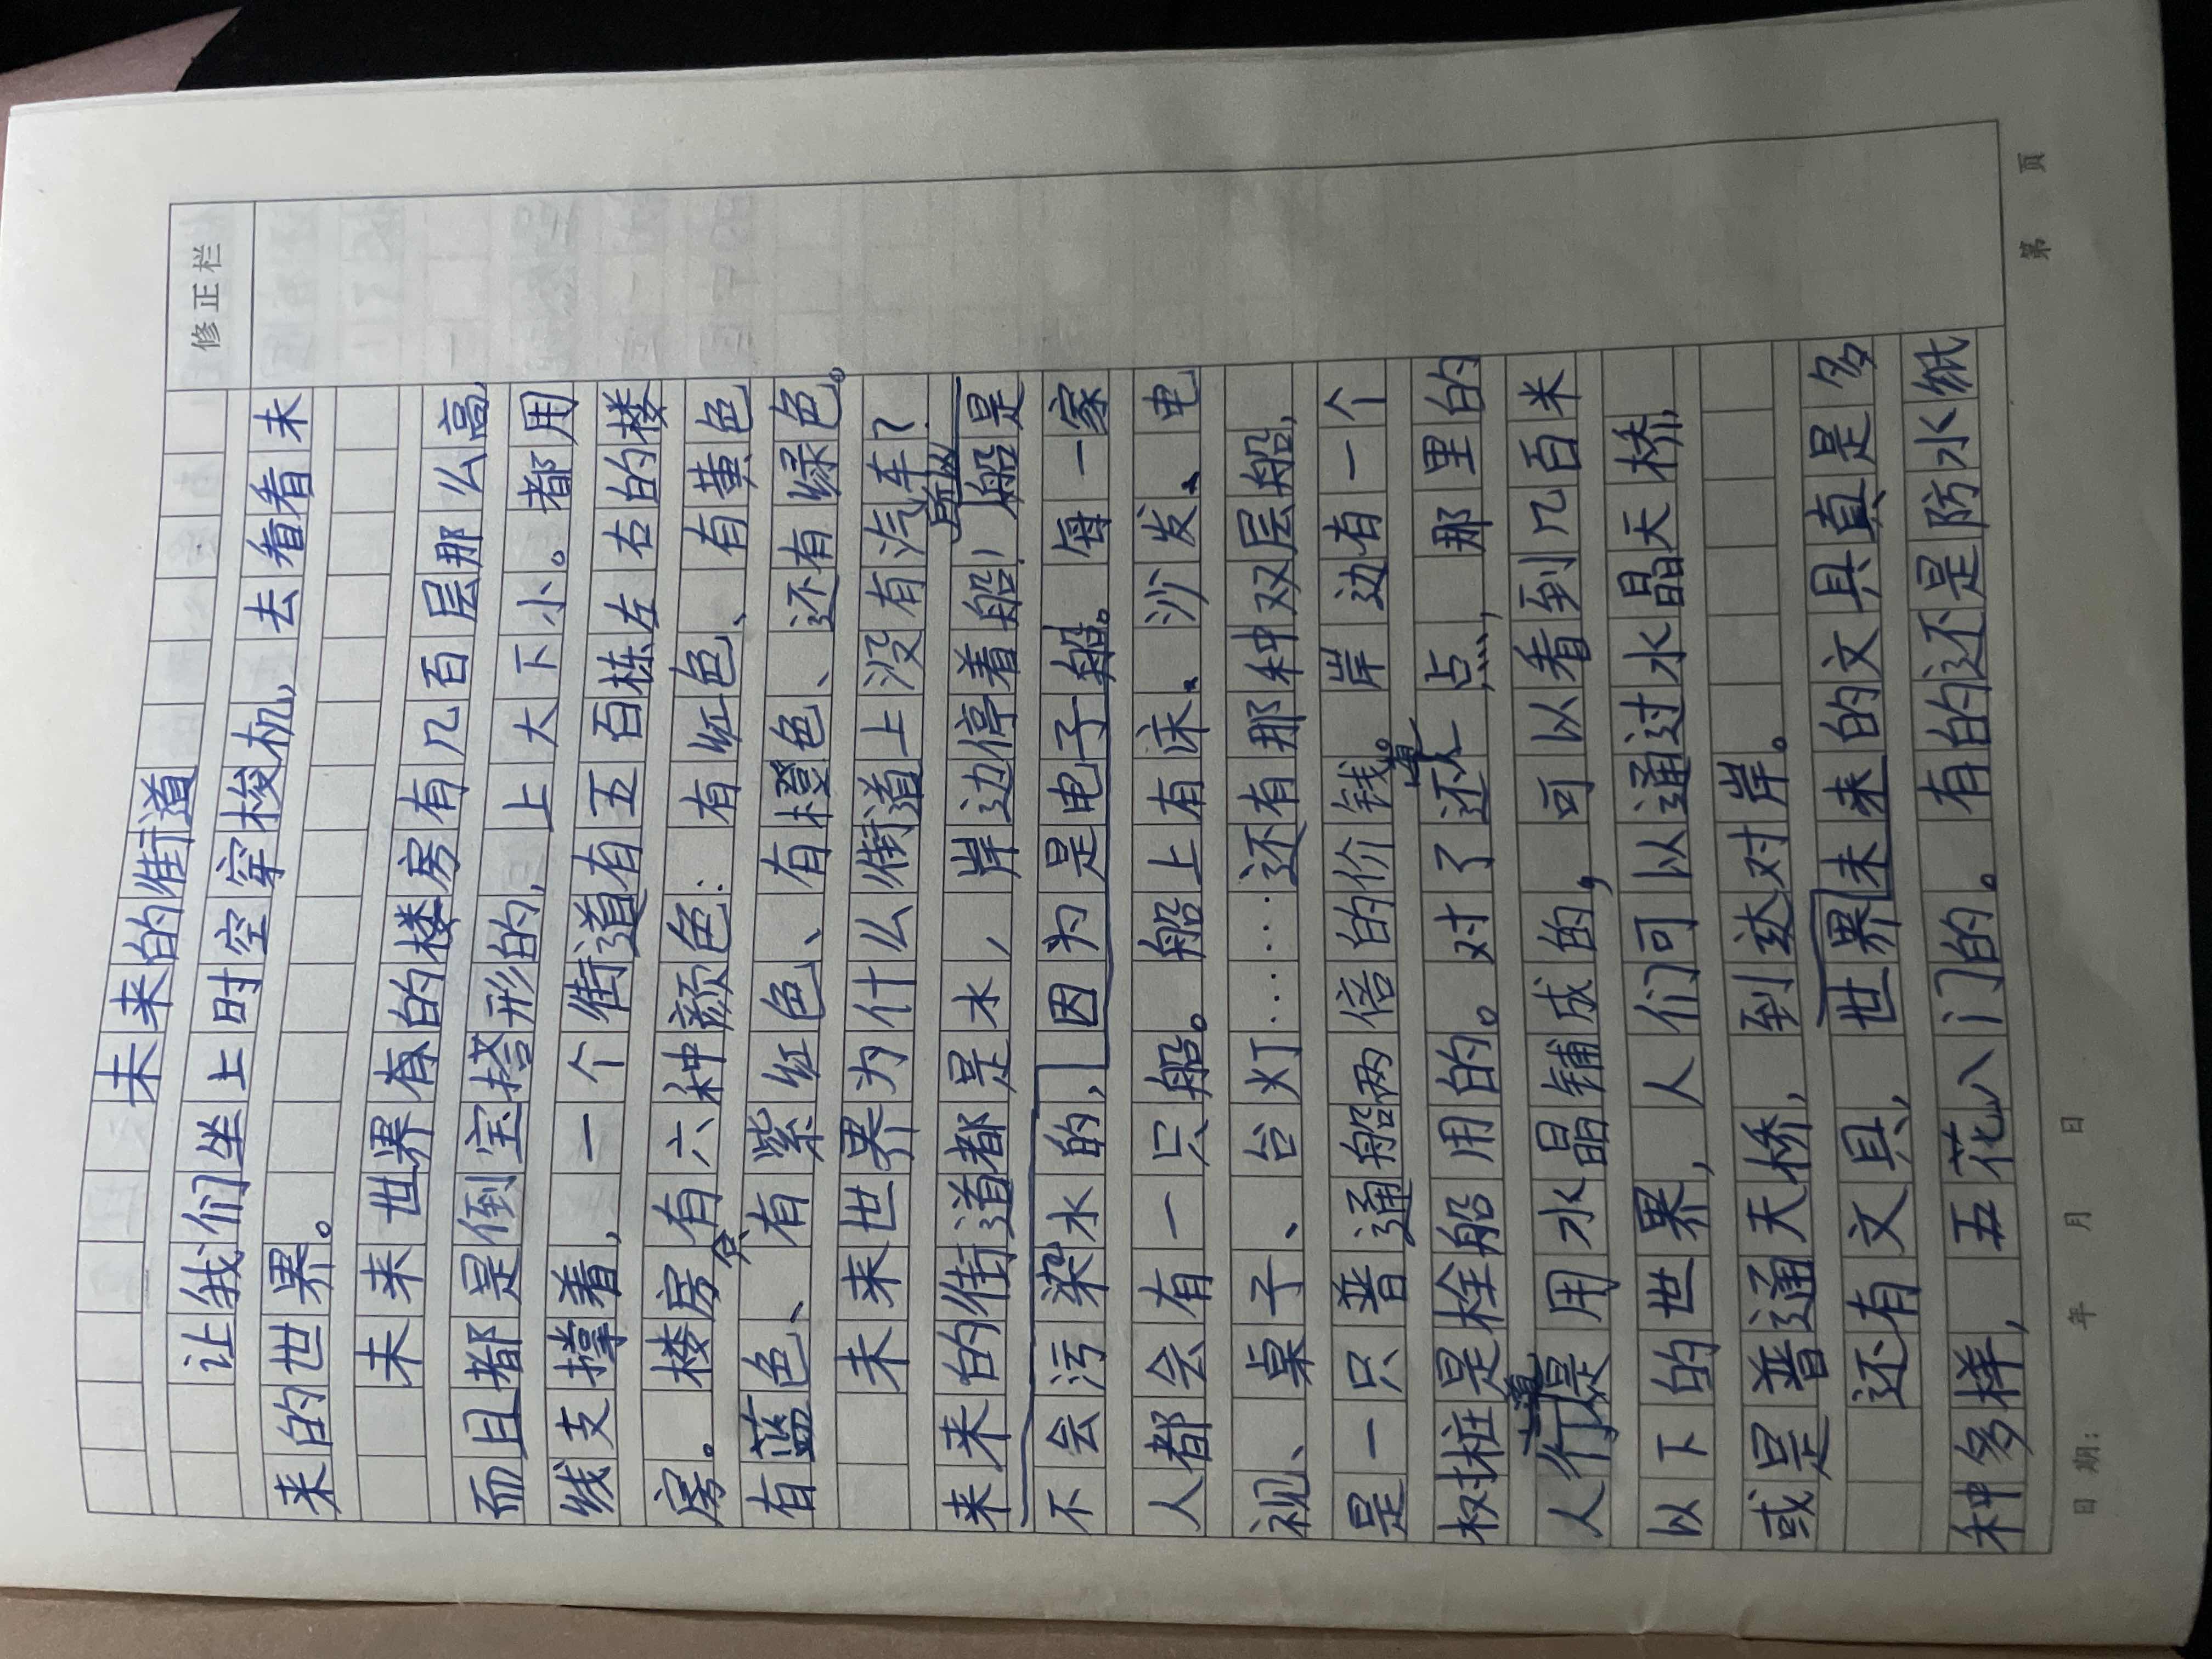 修正栏
未来的街道
让我们坐上时空穿梭机,去看看未
来的世界。
未来世界有的楼房有几百层那么高,
而且都是倒宝搭形的,上大下小。都用
线支撑着,一个街道有五百栋左右的楼
房。楼房有六种颜色:有红色、有黄色
有蓝色、有紫红色、有橙色、还有绿色。
未来世界为什么街道上没有汽车?
来来的街道都是水,岸边停着船!船是
不会污染水的,因为是电子船。每一家
人都会有一只船。船上有床、沙发、电
视、桌子、台灯……还有那种双层船,
是一只普通船两倍的价钱。岸边有一个
树桩是栓船用的。对了还一点,那里的
人行道是用水晶铺成的,可以看到几百米
以下的世界,人们可以通过水晶天桥,
或是普通天桥,到达对岸。
还有文具,世界未来的文具真是多
种多样,五花八门的。有的还是防水纸
日期: 年 月 日
第 页